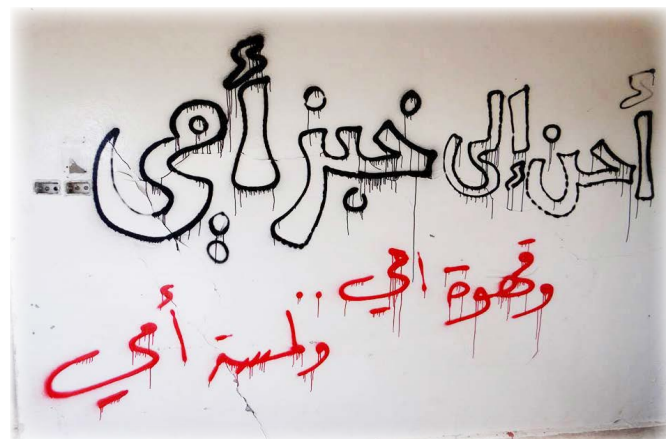 أحن إلى خبز أمي
وقهوة امي..
ولمسة أمي